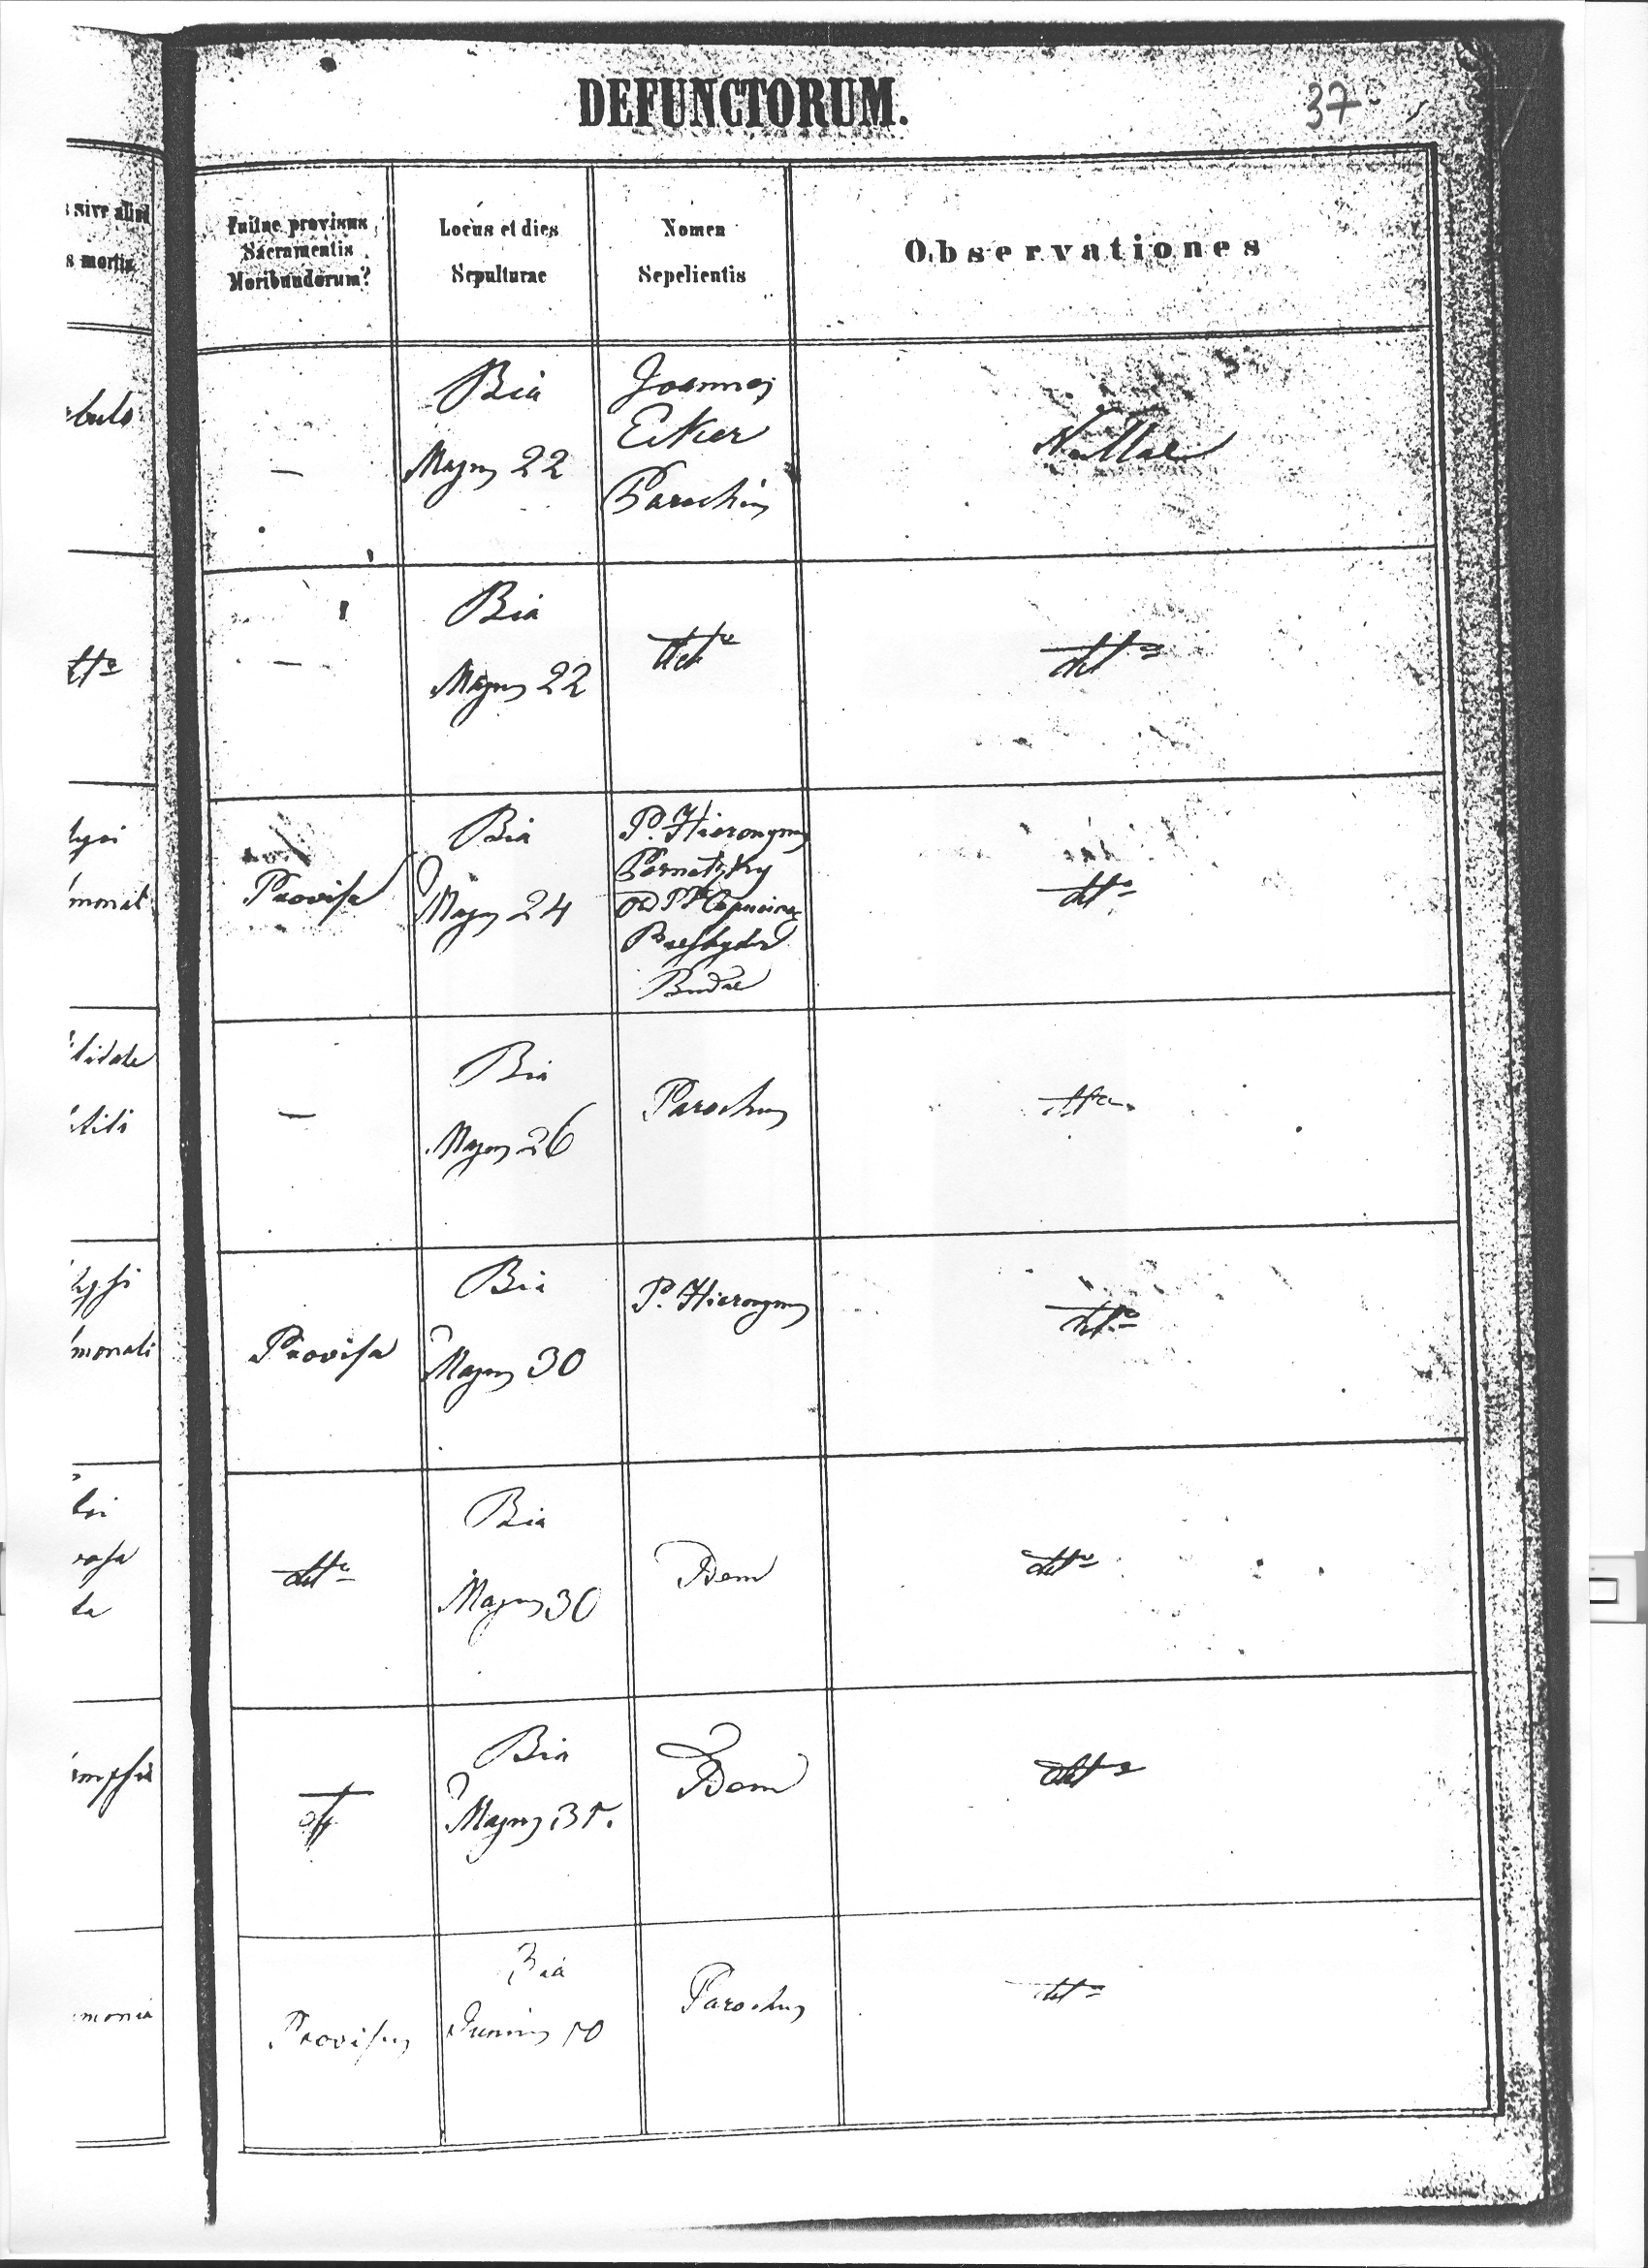 DEFUNCTORUM.
37
sive aliud
s mortis
Fuitne provisus
Sacramentis
Moribundorum?
Locus et dies
Sepulturae
Nomen
Sepelientis
Observationes
—
Bia
Majus 22
Joannes
Ecker
Parochus
Nullae
—
Bia
Majus 22
detto
detto
Provisa
Bia
Majus 24
P. Hieronymus
Capucinor
Presbyter
Budae
detto
monat
—
Bia
Majus 26
Parochus
detto
Provisa
Bia
Majus 30
P. Hieronymus
detto
monali
detto
Bia
Majus 30
Idem
detto
Bia
Majus 31.
Idem
detto
Provisus
Bia
Junius 10
Parochus
detto
monia